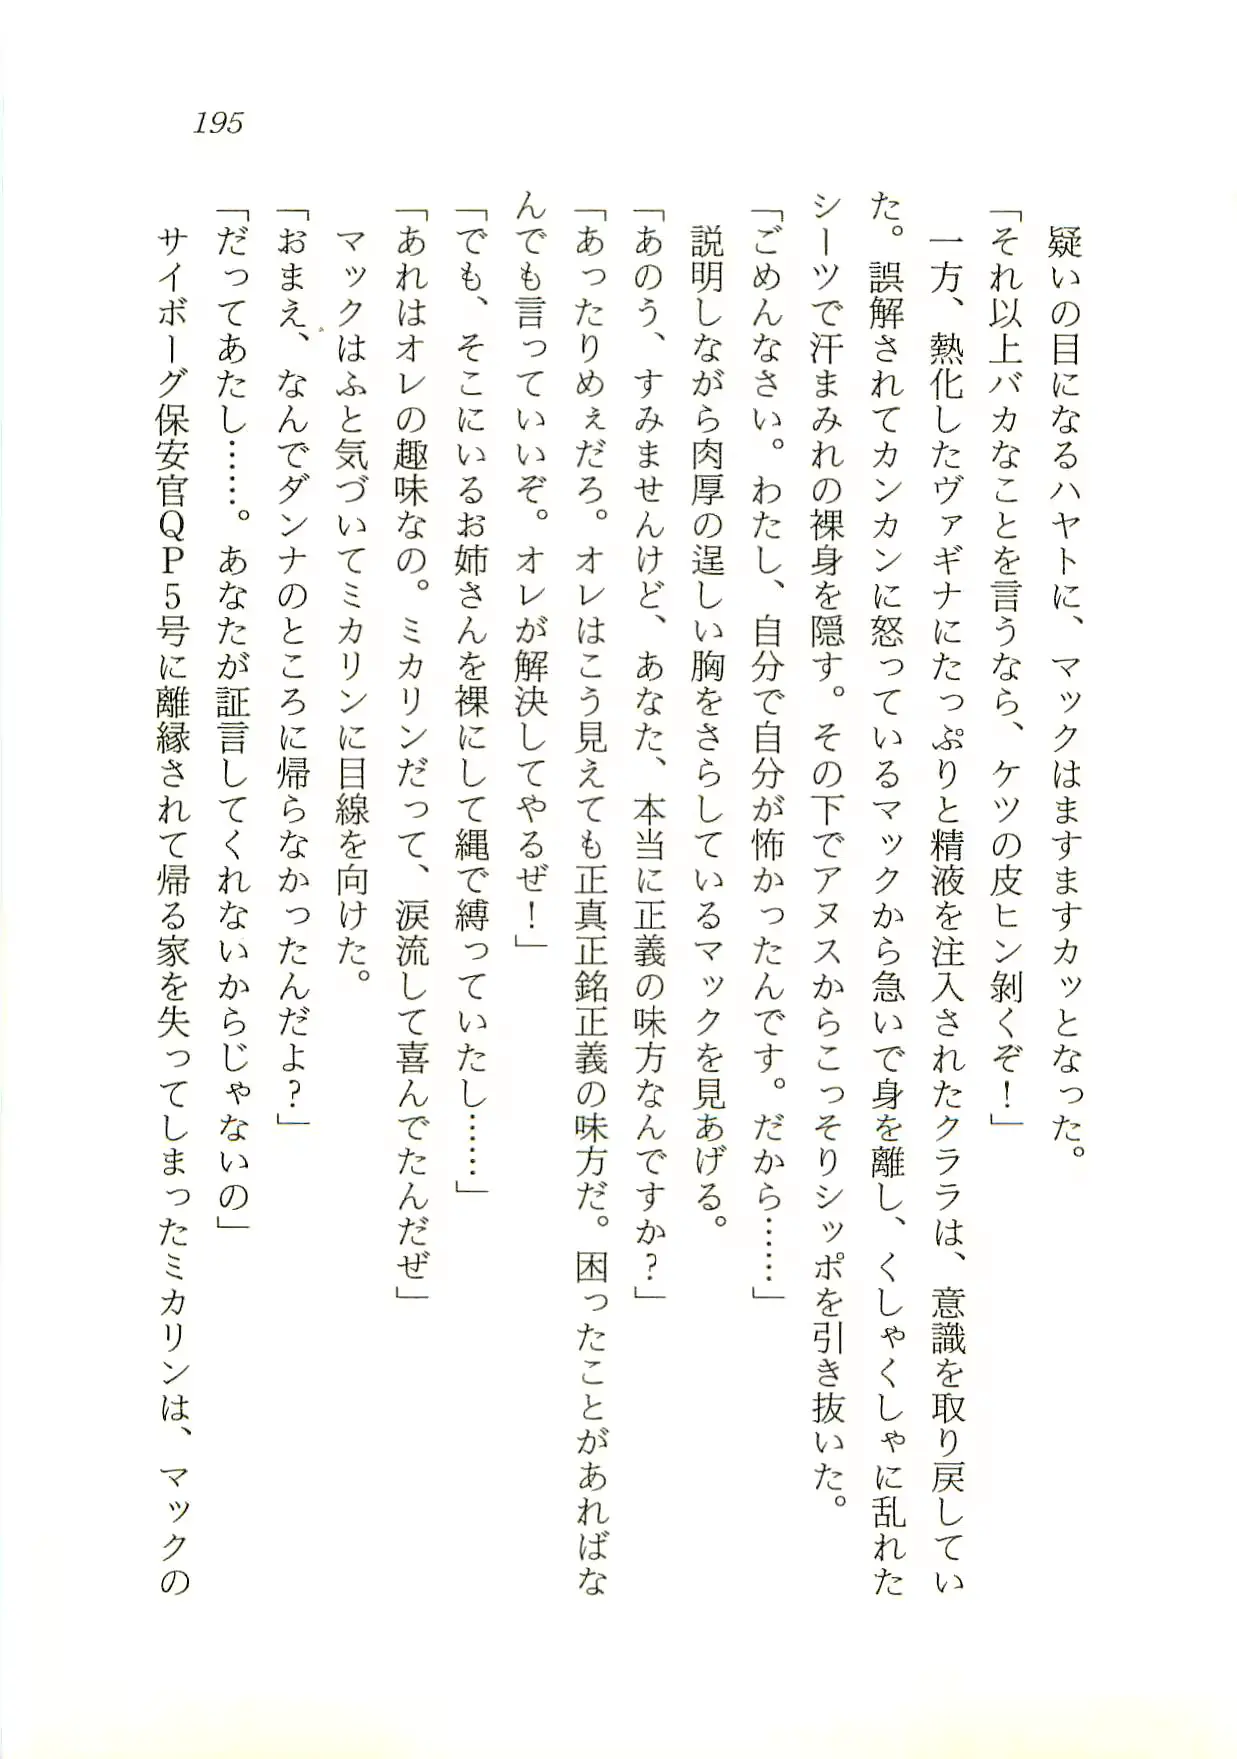 195
疑いの目になるハヤトに、マックはますますカッとなった。
「それ以上バカなことを言うなら、ケツの皮ヒン剝くぞ！」
一方、熱化したヴァギナにたっぷりと精液を注入されたクララは、意識を取り戻してい
た。誤解されてカンカンに怒っているマックから急いで身を離し、くしゃくしゃに乱れた
シーツで汗まみれの裸身を隠す。その下でアヌスからこっそりシッポを引き抜いた。
「ごめんなさい。わたし、自分で自分が怖かったんです。だから……」
説明しながら肉厚の逞しい胸をさらしているマックを見あげる。
「あのう、すみませんけど、あなた、本当に正義の味方なんですか？」
「あったりめぇだろ。オレはこう見えても正真正銘正義の味方だ。困ったことがあればな
んでも言っていいぞ。オレが解決してやるぜ！」
「でも、そこにいるお姉さんを裸にして縄で縛っていたし……」
「あれはオレの趣味なの。ミカリンだって、涙流して喜んでたんだぜ」
マックはふと気づいてミカリンに目線を向けた。
「おまえ、なんでダンナのところに帰らなかったんだよ？」
「だってあたし……。あなたが証言してくれないからじゃないの」
サイボーグ保安官ＱＰ５号に離縁されて帰る家を失ってしまったミカリンは、マックの